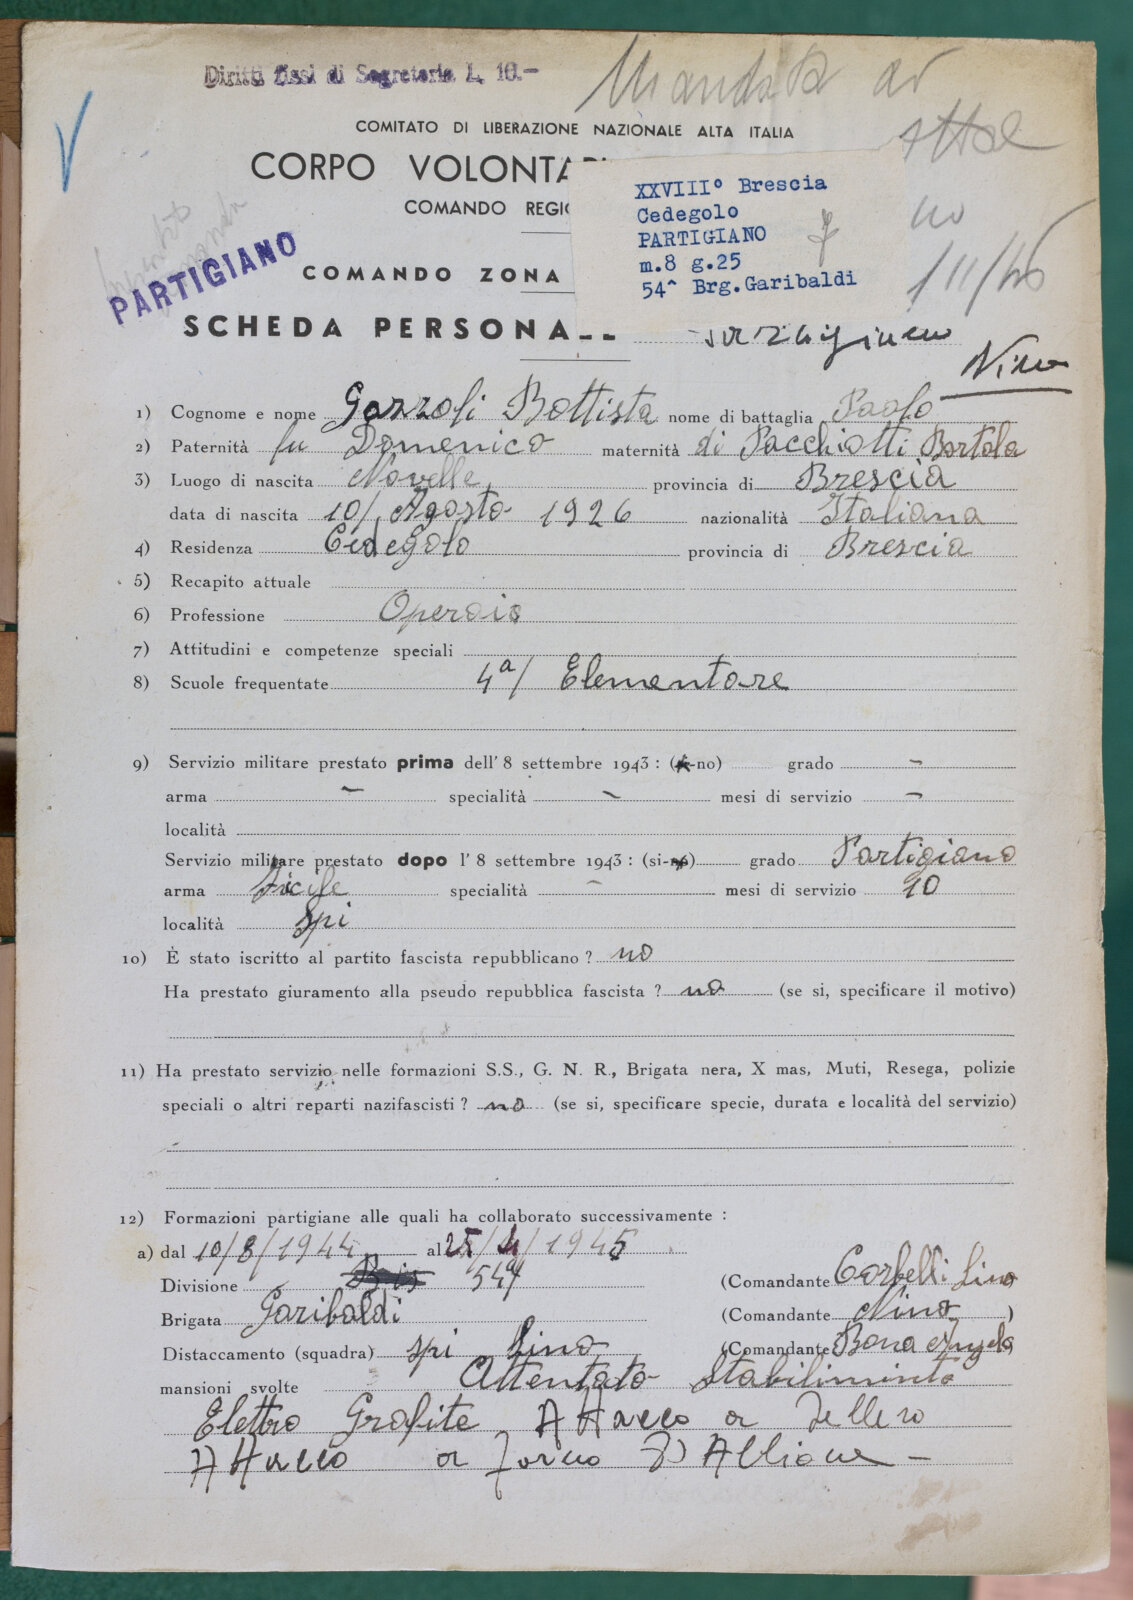 Diritti fissi di Segreteria L. 10.-
COMITATO DI LIBERAZIONE NAZIONALE ALTA ITALIA
CORPO VOLONTA
COMANDO REGI
XXVIII° Brescia
Cedegolo
PARTIGIANO
m.8 g.25
54^ Brg.Garibaldi
no
/11/46
PARTIGIANO
COMANDO ZONA
SCHEDA PERSONALE
Nino
1) Cognome e nome Gazzoli Battista nome di battaglia Paolo
2) Paternità fu Domenico maternità di Pacchiotti Bortola
3) Luogo di nascita Novelle provincia di Brescia
data di nascita 10/ Agosto 1926 nazionalità Italiana
4) Residenza Cedegolo provincia di Brescia
5) Recapito attuale
6) Professione Operaio
7) Attitudini e competenze speciali
8) Scuole frequentate 4a/ Elementare
9) Servizio militare prestato prima dell' 8 settembre 1943 : (si-no) grado -
arma - specialità - mesi di servizio -
località
Servizio militare prestato dopo l' 8 settembre 1943 : (si-no) grado Partigiano
arma specialità - mesi di servizio 10
località Spi
10) È stato iscritto al partito fascista repubblicano ? no
Ha prestato giuramento alla pseudo repubblica fascista ? no (se si, specificare il motivo)
11) Ha prestato servizio nelle formazioni S.S., G. N. R., Brigata nera, X mas, Muti, Resega, polizie
speciali o altri reparti nazifascisti ? no (se si, specificare specie, durata e località del servizio)
12) Formazioni partigiane alle quali ha collaborato successivamente :
a) dal 10/8/1944 al 25/4/1945
Divisione 54a (Comandante Gorbelli Lino
Brigata Garibaldi (Comandante Nino )
Distaccamento (squadra) Spi Lino (Comandante Bona Angelo)
mansioni svolte Attentato Stabiliminto
Elettro Grafite Attacco a
Attacco a Forno D'Allione -